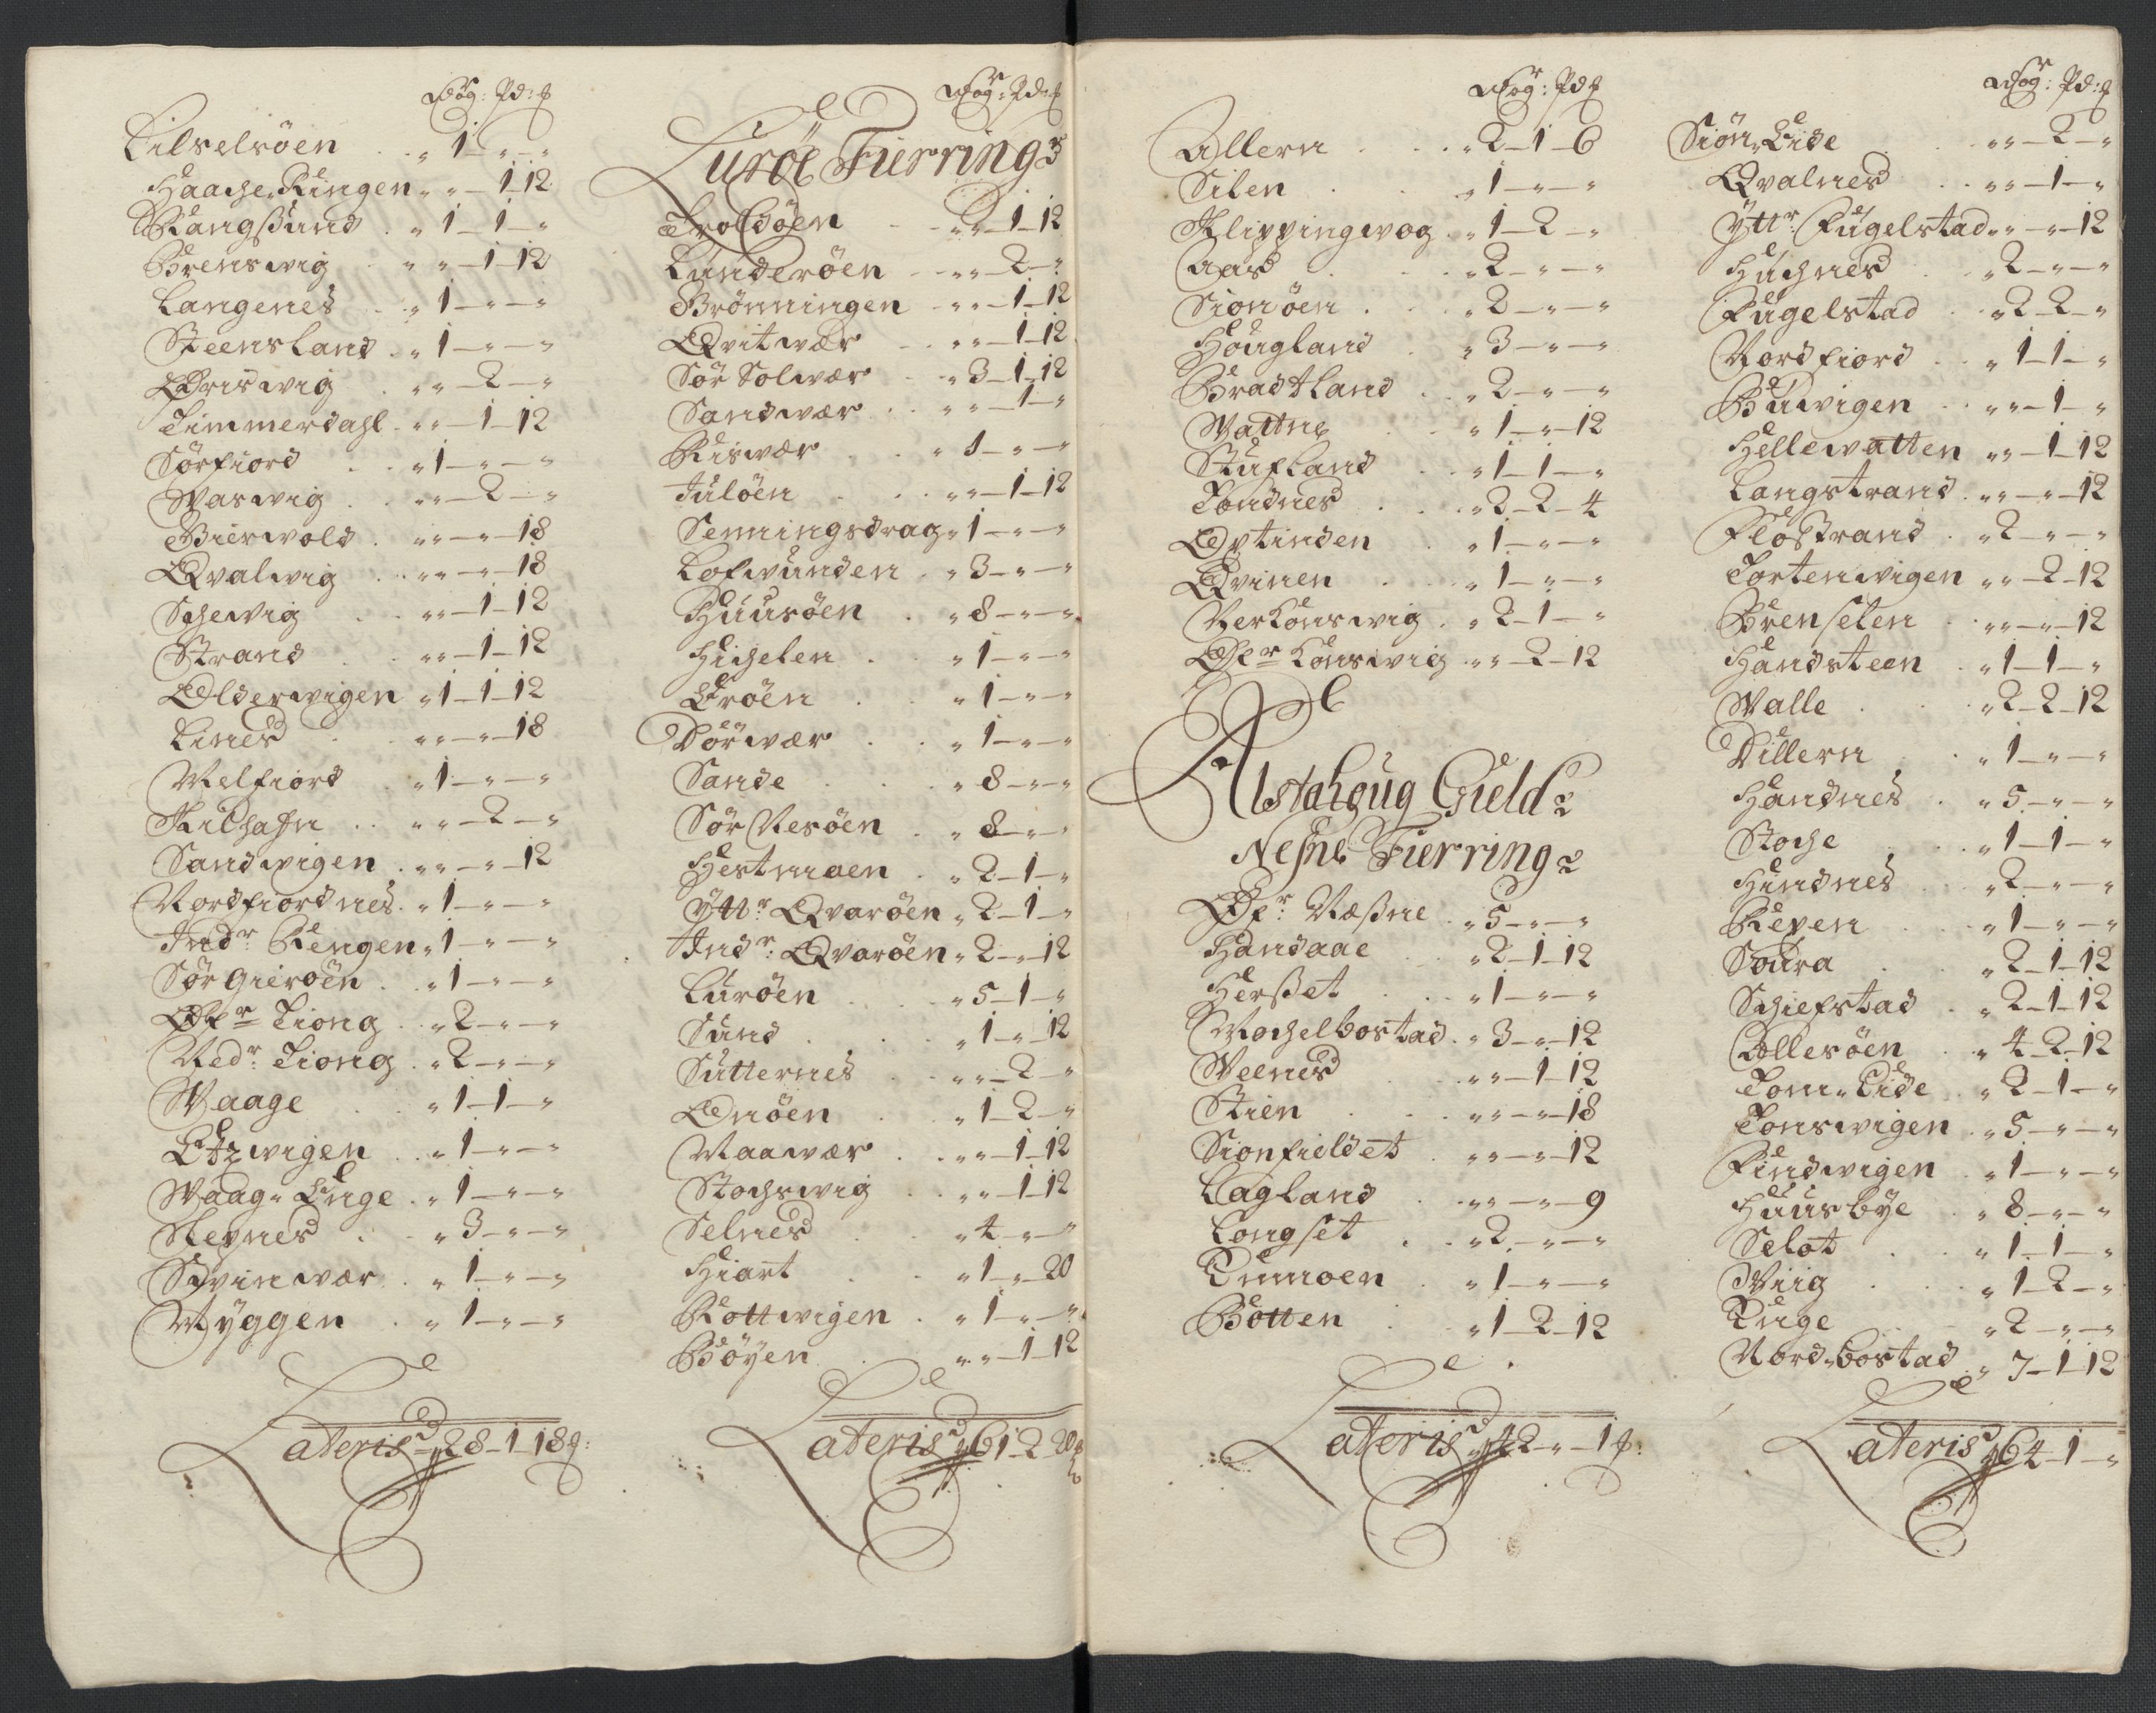 Wog: Pd: ℔
Lilselsöen . . „ 1 – „ – „
Haache Ringen „ „ – 1 – 12
Rangßund . „ 1 – 1 – „
Brenswig . „ „ – 1 – 12
Langenes . . „ 1 – „ – „
Steensland . „ 1 – „ – „
Øriswig . „ „ – 2 – „
Timmerdahl . „ „ – 1 – 12
Sörfiord . . „ 1 – „ – „
Waswig . . „ „ – 2 – „
Bierwold . „ „ – „ – 18
Qvalwig . . „ „ – „ – 18
Schevig . . „ „ – 1 – 12
Strand . . „ „ – 1 – 12
Olderwigen „ 1 – 1 – 12
Lines . . „ „ – „ – 18
Melfiord . „ 1 – „ – „
Kilhafn . . „ „ – 2 – „
Sandwigen . „ „ – „ – 12
Nordfiordnes . „ 1 – „ – „
Indr: Rengen „ 1 – „ – „
Sör Gieröen . „ 1 – „ – „
Øfr Tiong . „ 2 – „ – „
Nedr: Tiong . „ 2 – „ – „
Waage . „ 1 – 1 – „
Etzwigen . . „ 1 – „ – „
Waag „ Enge . „ 1 – „ – „
Støpnes . . „ 3 – „ – „
Svinwær . „ 1 – „ – „
Myggen . „ 1 – „ – „
Lateris 28 – 1 – 18 ℔:
Wog: Pd: ℔
Luröe Fierring
Troldöen . . „ „ – 1 – 12
Lunderöen . „ „ – 2 – „
Brönningen . „ „ – 1 – 12
Qvitwær . . „ „ – 1 – 12
Sör Solwær . „ 3 – 1 – 12
Sandwær . . „ „ – 1 – „
Riswær . . „ 1 – „ – „
Julöen . . „ „ – 1 – 12
Senningsdrag „ 1 – „ – „
Lofwunden . „ 3 – „ – „
Huusöen . „ 8 – „ – „
Hichelen . „ 1 – „ – „
Eröen . „ 1 – „ – „
Dörwær . . „ 1 – „ – „
Sande . „ 8 – „ – „
Sör Nesöen . „ 8 – „ – „
Hestmoen . „ 2 – 1 – „
Yttr: Qvaröen „ 2 – 1 – „
Indr: Qvaröen „ 2 – „ – 12
Luröen . „ 5 – 1 – „
Sund . . „ 1 – „ – 12
Sutternes . „ „ – 2 – „
Onöen . „ 1 – 2 – „
Maawær . . „ „ – 1 – 12
Stochswig . „ „ – 1 – 12
Selnes . „ 4 – „ – „
Hiart . „ 1 – „ – 20
Kottwigen . „ 1 – „ – „
Böyen . „ „ – 1 – 12
Lateris 61 – 2 – 20 ℔
Wog: Pd ℔
Allern . . . „ 2 – 1 – 6
Silen . . „ 1 – „ – „
Klippingwog . „ 1 – 2 – „
Aas . . „ 2 – „ – „
Sionöen . „ 2 – „ – „
Hougland . „ 3 – „ – „
Bradtland . „ 2 – „ – „
Wattne . „ 1 – „ – 12
Stufland . „ 1 – 1 – „
Tondnes . . „ 2 – 2 – 4
Optinden . „ 1 – „ – „
Qvinen . . „ 1 – „ – „
Nerkonswig . „ 2 – 1 – „
Øfr Konswig . „ „ – 2 – 12
Alstahoug Gield
Nesne Fierring
Øfr: Næßne . „ 5 – „ – „
Handaae . „ 2 – 1 – 12
Herßet . . „ 1 – „ – „
Mochelbostad . „ 3 – „ – 12
Weenes . „ „ – 1 – 12
Stien . . „ „ – „ – 18
Sionfieldet . „ „ – „ – 12
Lagland . „ „ – „ – 9
Longset . . „ 2 – „ – „
Ennmoen . „ 1 – „ – „
Botten . „ 1 – 2 – 12
Lateris 42 – „ – 1 ℔:
Wog: Pd: ℔
Sion „ Lide . . „ „ – 2 – „
Qvalnes . . „ „ – 1 – „
Yttr: Fugelstad „ „ – „ – 12
Huchnes . „ 2 – „ – „
Fugelstad . „ 2 – 2 – „
Nordfiord . „ 1 – 1 – „
Buwigen . . „ „ – 1 – „
Hellewatten „ „ – 1 – 12
Langstrand . „ „ – „ – 12
Flostrand . „ 2 – „ – „
Tortenwigen „ „ – 2 – 12
Brenselen . „ „ – „ – 12
Handsteen . „ 1 – 1 – „
Walle . . „ 2 – 2 – 12
Dillern . „ 1 – „ – „
Handnes . „ 5 – „ – „
Stoche . „ 1 – 1 – „
Hindnes . „ 2 – „ – „
Reven . „ 1 – „ – „
Soura . „ 2 – 1 – 12
Schiefstad . „ 2 – 1 – 12
Ollesöen . „ 4 – 2 – 12
Tom „ Lide . „ 2 – 1 – „
Tonswigen . „ 5 – „ – „
Findwigen . „ 1 – „ – „
Huusbye . „ 8 – „ – „
Selot . . „ 1 – 1 – „
Wiig . . „ 1 – 2 – „
Enge . „ 2 – „ – „
Nord „ bostad . „ 7 – 1 – 12
Lateris 64 – 1 – „